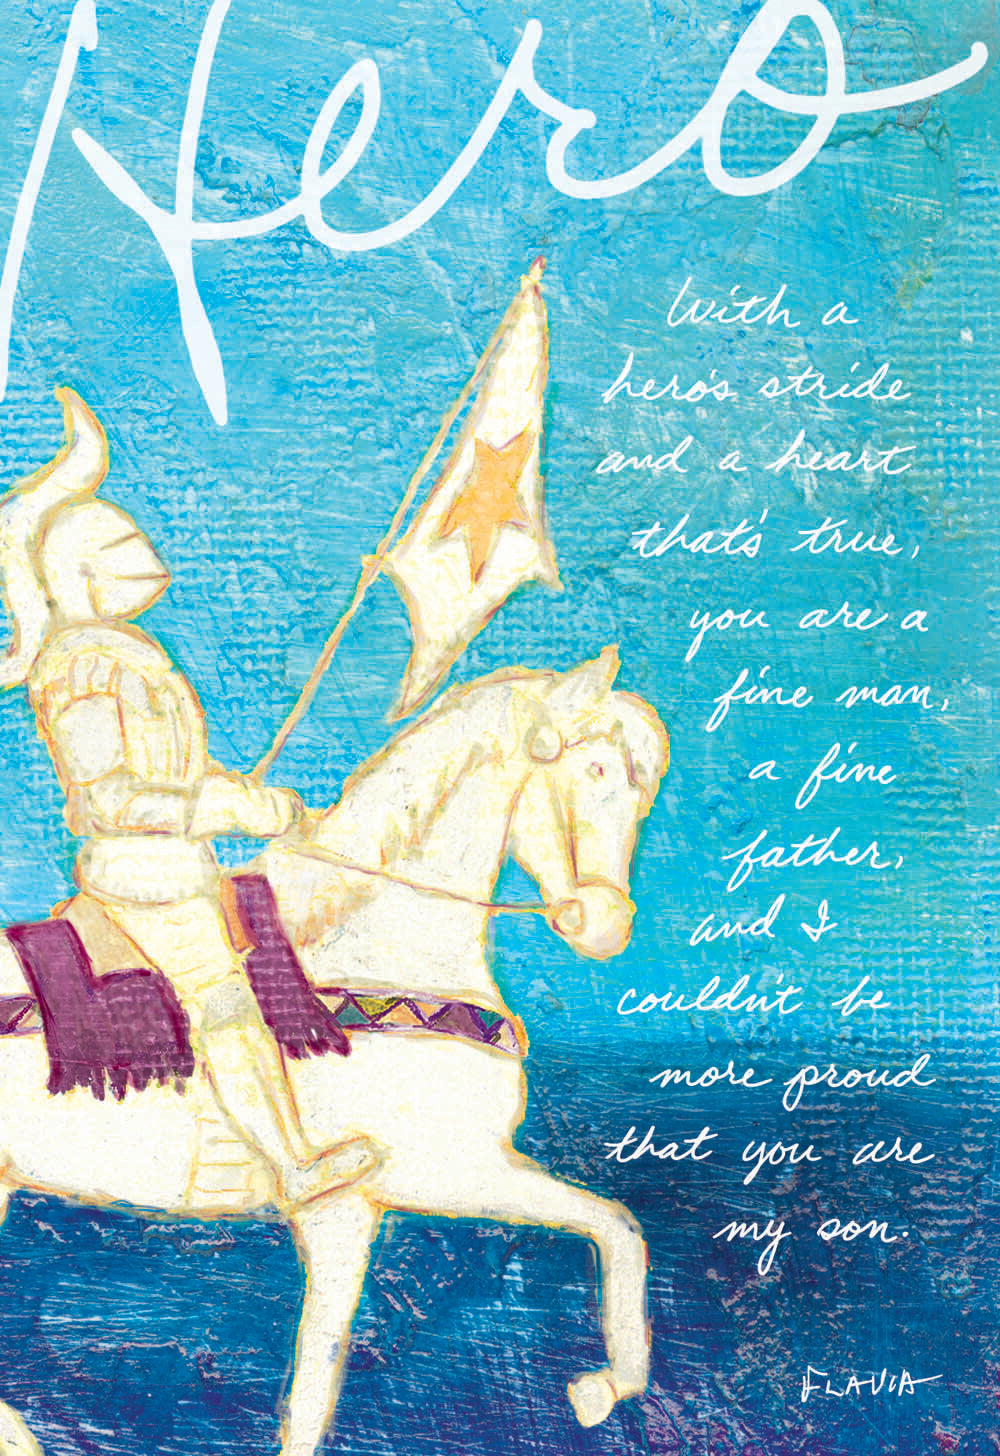 Hero
With a
hero's stride
and a heart
that's true,
you are a
fine man,
a fine
father,
and I
couldn't be
more proud
that you are
my son.
FLAVIA